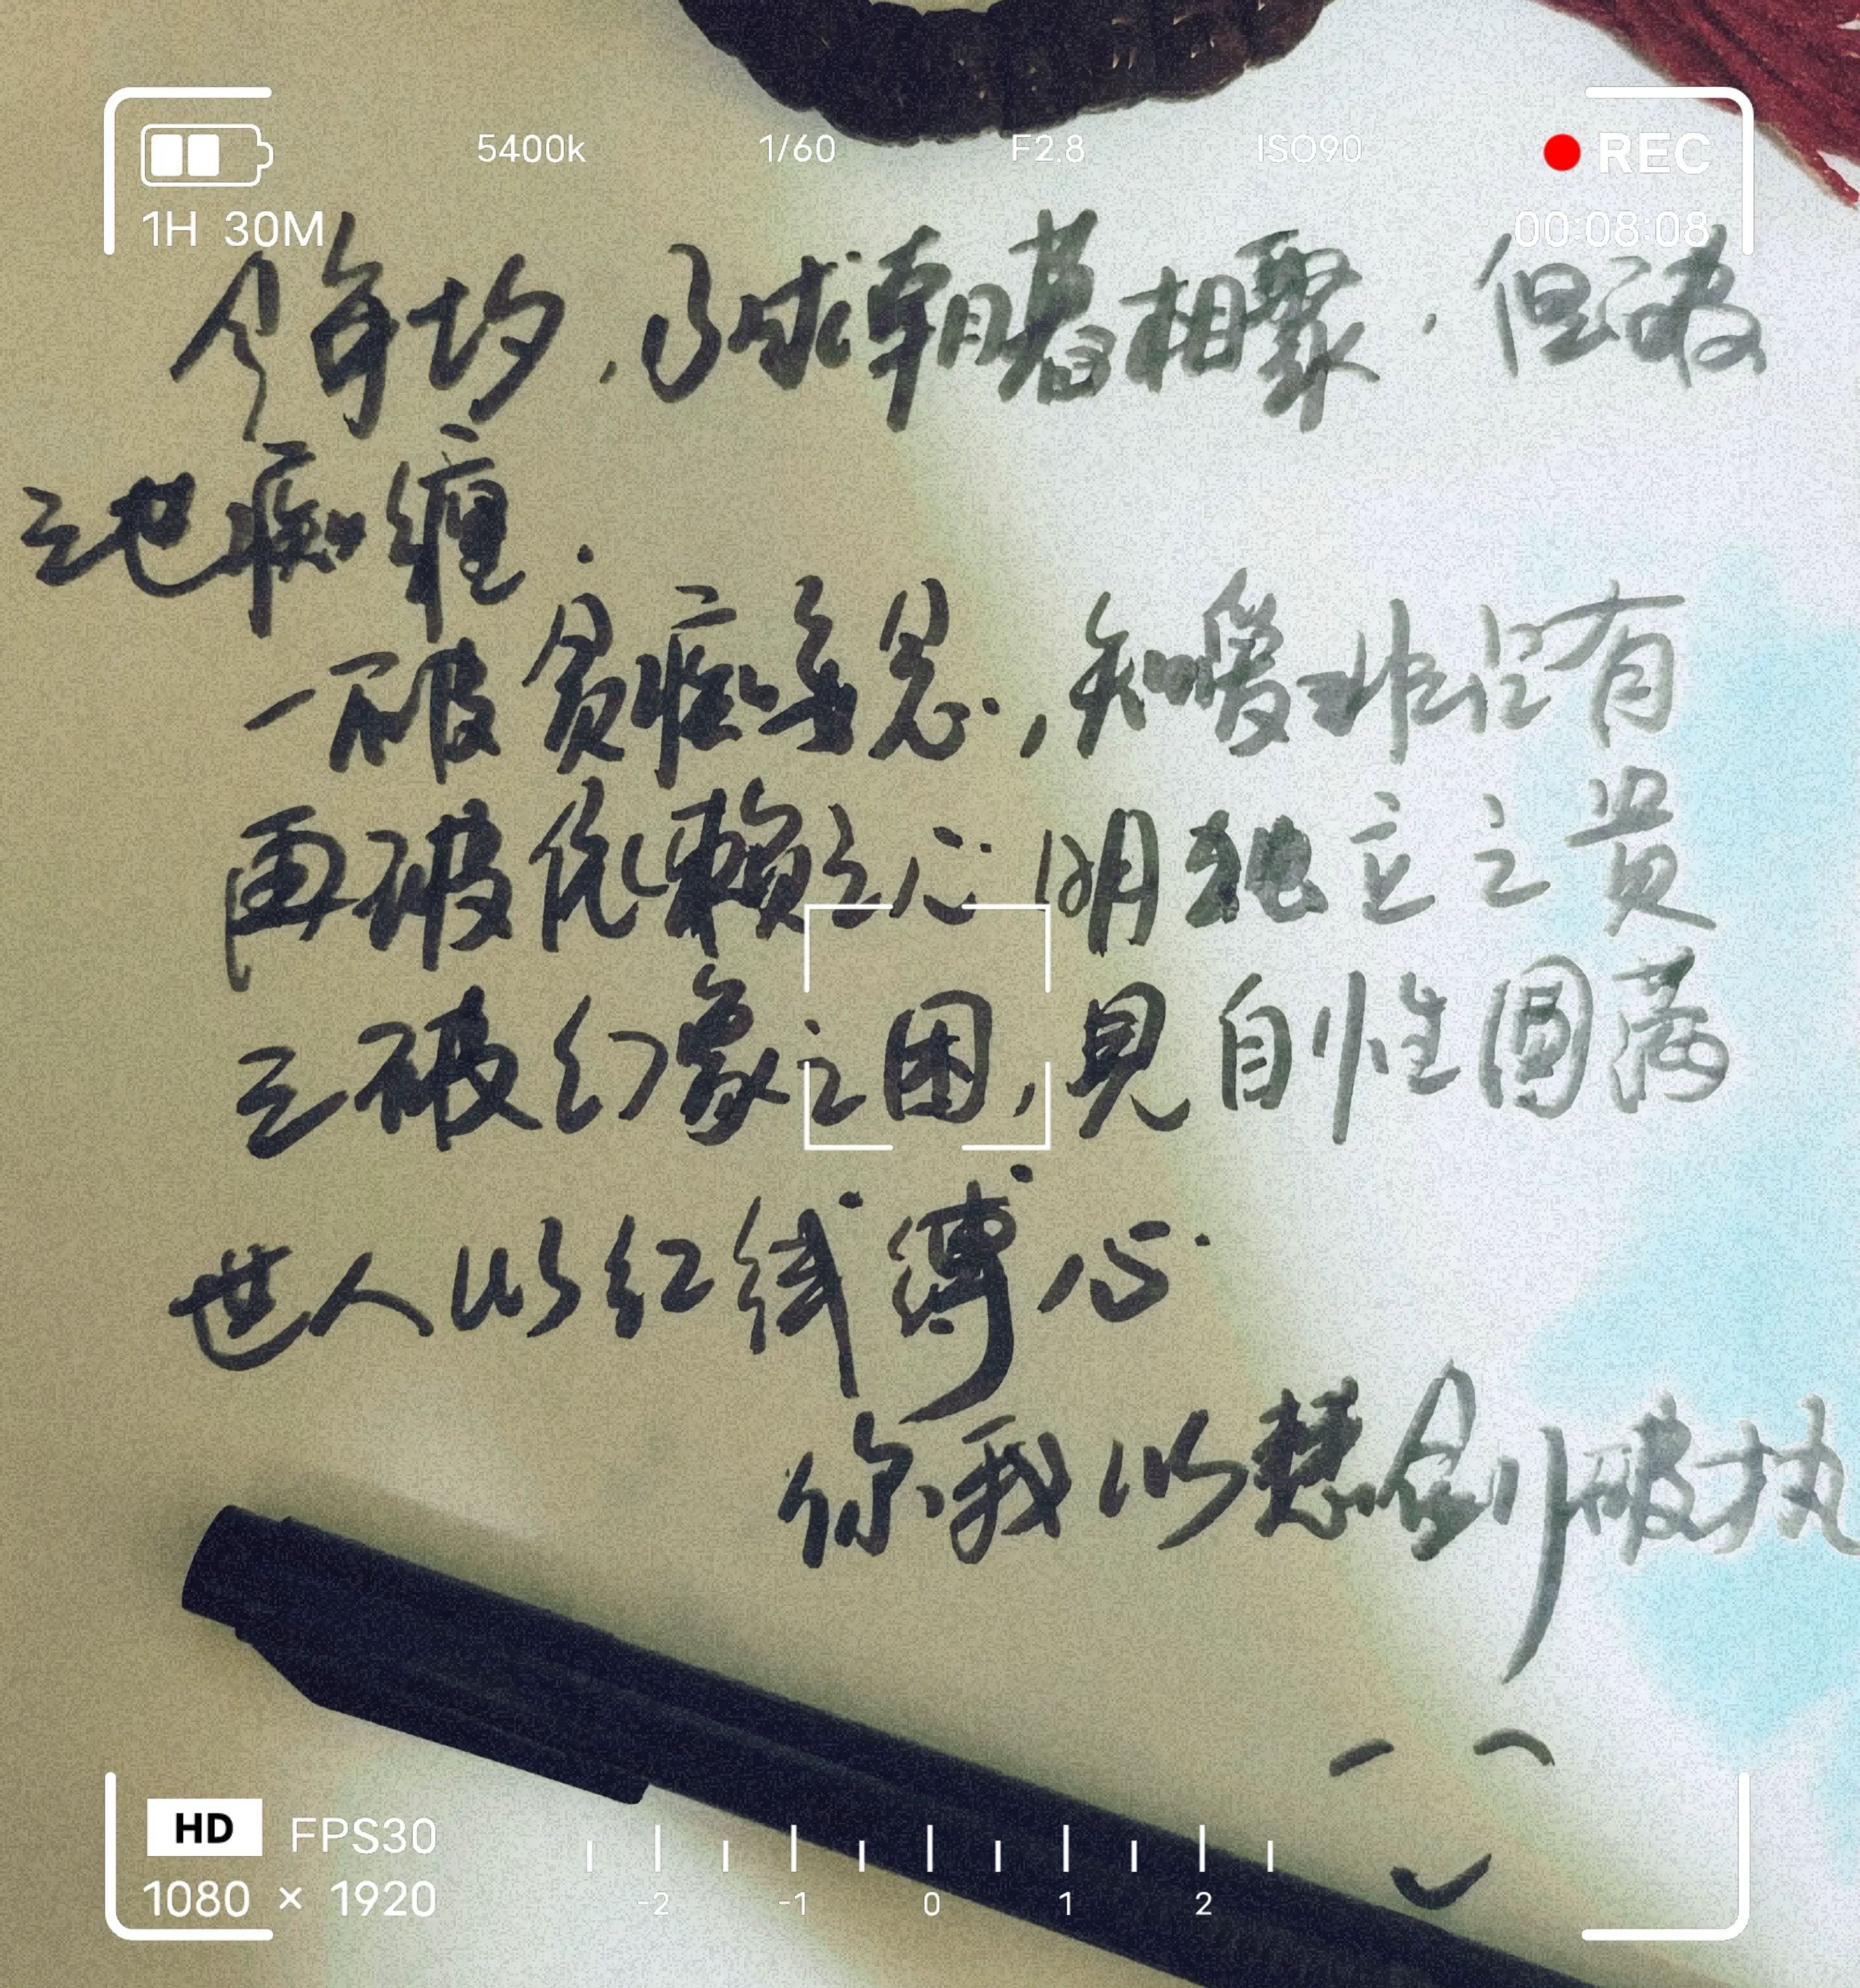 5400k 1/60 F2.8 ISO90 REC
1H 30M 00:08:08
不求朝暮相聚．但破
三世痴纏．
一破貪痴 思，知愛非占有
再破依賴之心 明独立之贵
三破幻象之困，見自性圓满
世人以红线缚心
你我以慧剑破执
HD FPS30
1080 × 1920 -2 -1 0 1 2